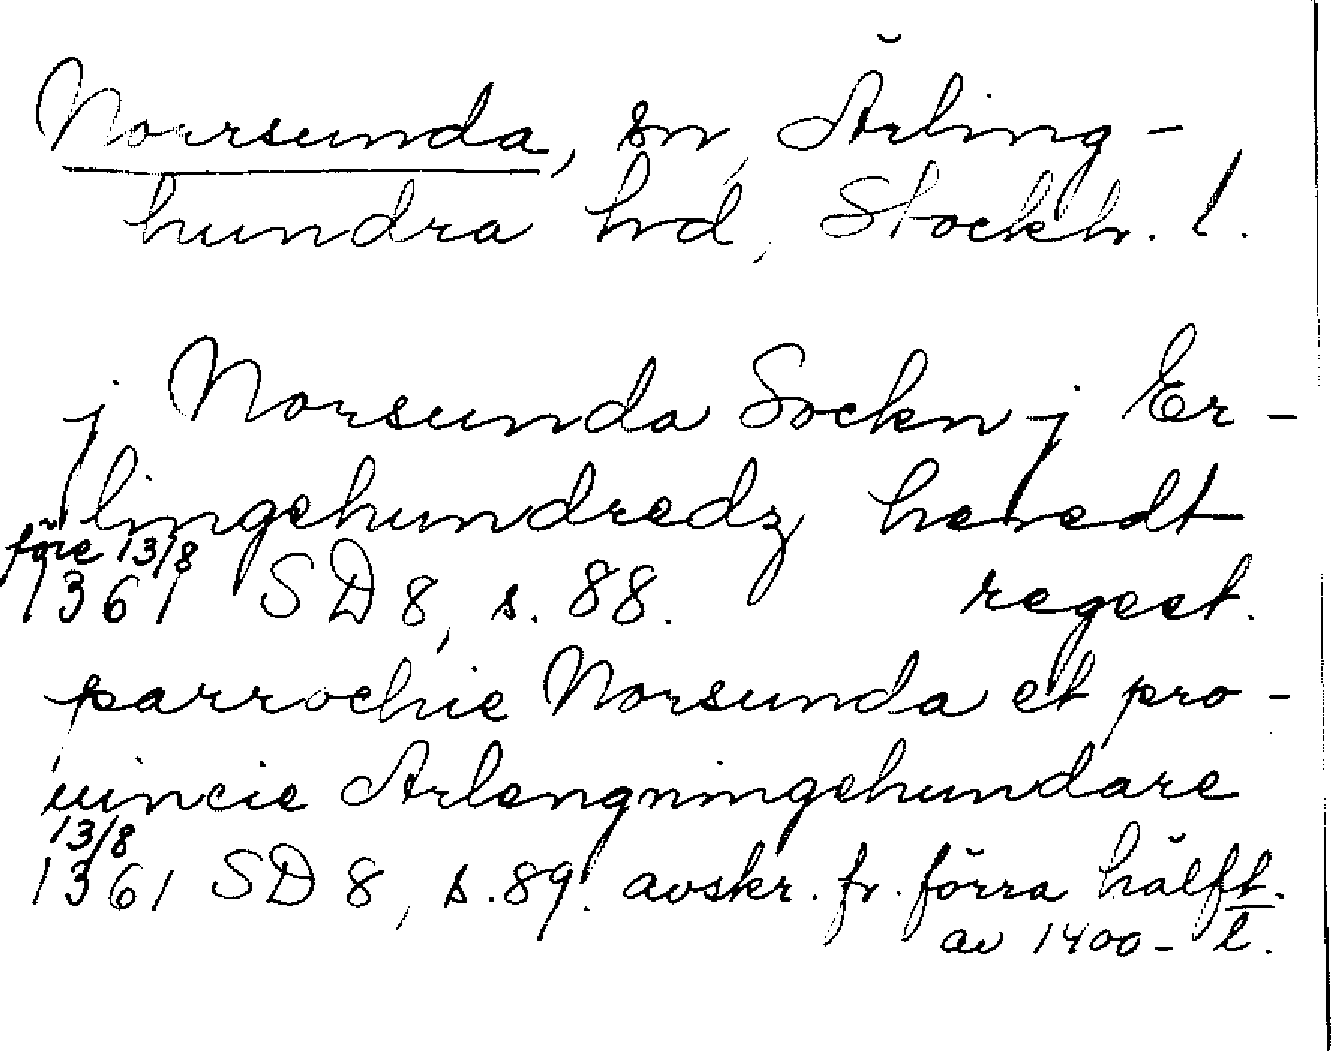 Norrsunda, sn, Ärling-
hundra hd, Stockh. l.
j Norsunda Sockn j Er-
lingehundredz heredt
före 13/8
1361 SD 8, s. 88. regest.
parrochie Norsunda et pro-
uincie Arlengningehundare
13/8
1361 SD 8, s. 89. avskr. fr. förra hälft.
av 1400-t.